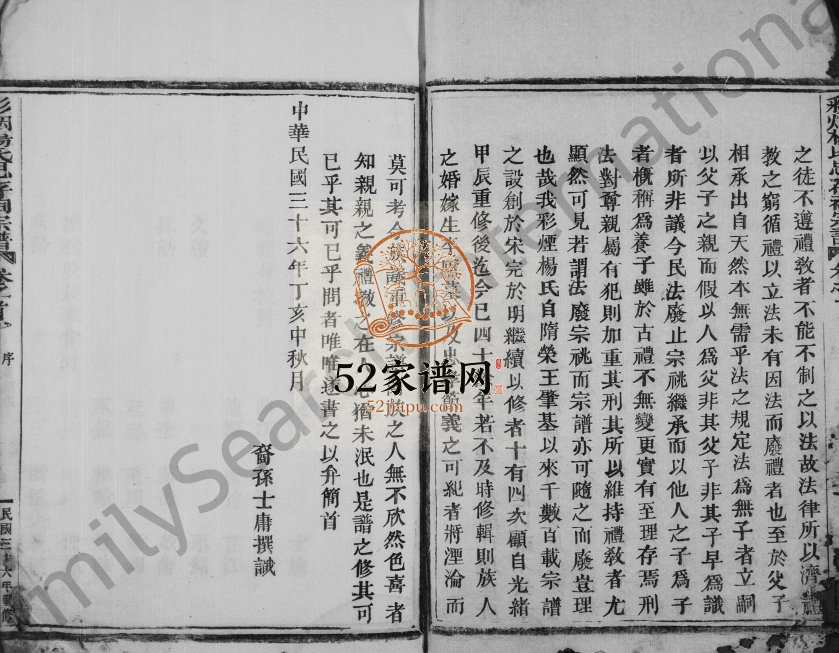 之徒不遵禮教者不能不制之以法故法律所以濟禮
教之窮循禮以立法未有因法而廢禮者也至於父子
相承出自天然本無需乎法之規定法爲無子者立嗣
以父子之親而假以人爲父非其父子非其子早爲識
者所非議今民法廢止宗祧繼承而以他人之子爲子
者概稱爲養子雖於古禮不無變更實有至理存焉刑
法對尊親屬有犯則加重其刑其所以維持禮教者尤
顯然可見若謂法廢宗祧而宗譜亦可隨之而廢豈理
也哉我彩煙楊氏自隋榮王肇基以來千數百載宗譜
之設創於宋完於明繼續以修者十有四次顧自光緒
甲辰重修後迄今已四十年若不及時修輯則族人
之婚嫁生以及忠節義之可犯者將湮淪而
莫可考今族議重宗譜族之人無不欣然色喜者
知親親之義禮教之在人心猶未泯也是譜之修其可
已乎其可已乎問者唯唯遂書之以弁簡首
中華民國三十六年丁亥中秋月
裔孫士庸撰識
楊氏忠孝祠宗譜 卷之首 序
民國三十六年重修
52家谱网
52jiapu.com
milySearch International